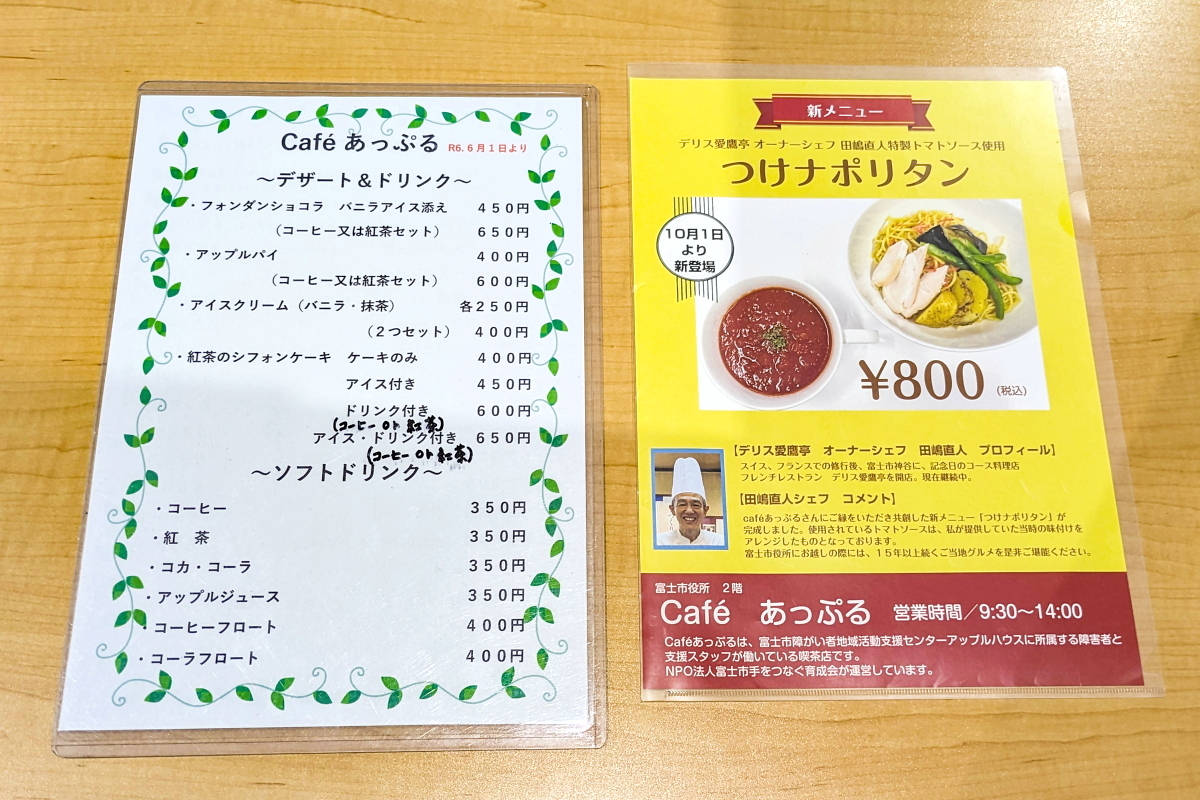 Café あっぷる R6.6月1日より
～デザート＆ドリンク～
・フォンダンショコラ バニラアイス添え 450円
（コーヒー又は紅茶セット） 650円
・アップルパイ 400円
（コーヒー又は紅茶セット） 600円
・アイスクリーム（バニラ・抹茶） 各250円
（2つセット） 400円
・紅茶のシフォンケーキ ケーキのみ 400円
アイス付き 450円
ドリンク付き 600円
(コーヒー or 紅茶)
アイス・ドリンク付き 650円
(コーヒー or 紅茶)
～ソフトドリンク～
・コーヒー 350円
・紅 茶 350円
・コカ・コーラ 350円
・アップルジュース 350円
・コーヒーフロート 400円
・コーラフロート 400円
新メニュー
デリス愛鷹亭 オーナーシェフ 田嶋直人特製トマトソース使用
つけナポリタン
10月1日
より
新登場
¥800 (税込)
【デリス愛鷹亭 オーナーシェフ 田嶋直人 プロフィール】
スイス、フランスでの修行後、富士市神谷に、記念日のコース料理店
フレンチレストラン デリス愛鷹亭を開店。現在継続中。
【田嶋直人シェフ コメント】
caféあっぷるさんにご縁をいただき共創した新メニュー「つけナポリタン」が
完成しました。使用されているトマトソースは、私が提供していた当時の味付けを
アレンジしたものとなっております。
富士市役所にお越しの際には、15年以上続くご当地グルメを是非ご堪能ください。
富士市役所 2階
Café あっぷる 営業時間／9:30～14:00
Caféあっぷるは、富士市障がい者地域活動支援センターアップルハウスに所属する障害者と
支援スタッフが働いている喫茶店です。
NPO法人富士市手をつなぐ育成会が運営しています。